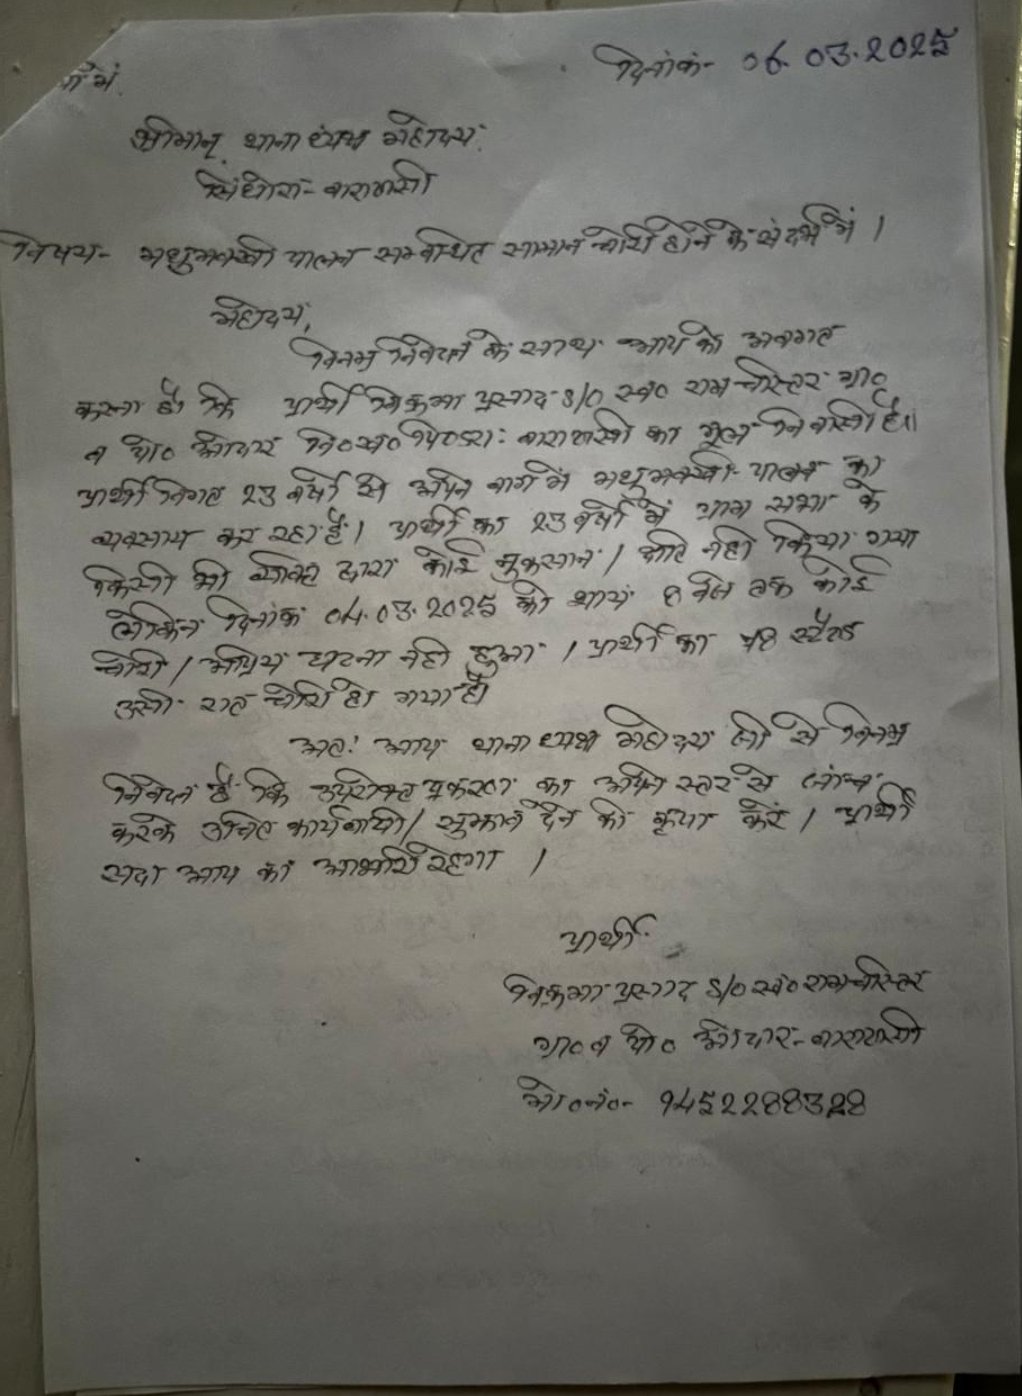 दिनांक- 06.03.2025
में
श्रीमान् थानाध्यक्ष महोदय
सिंधोरा- वाराणसी
विषय- मधुमक्खी पालन सम्बन्धित सामान चोरी होने के संदर्भ में ।
महोदय,
विनम्र निवेदन के साथ आप को अवगत
करना है कि प्रार्थी विक्रमा प्रसाद S/O स्व० राम ग्रा०
व पो० वि०ख० पिण्डरा: वाराणसी का मूल निवासी है।।
प्रार्थी विगत 23 वर्षों से अपने बाग में मधुमक्खी- पालन का
व्यवसाय कर रहा है। प्रार्थी का 23 वर्षों में ग्राम सभा के
किसी भी व्यक्ति द्वारा कोई नुकसान / क्षति नहीं किया गया
लेकिन दिनांक 04.03.2025 को शायं 8 बजे तक कोई
चोरी / अप्रिय घटना नहीं हुआ । प्रार्थी का 48 स्टैण्ड
उसी रात चोरी हो गया है।
अत: आप थानाध्यक्ष महोदय जी से विनम्र
निवेदन है कि उपरोक्त प्रकरण का अपने स्तर से जांच
करके उचित कार्यवाही / सुझाव देने की कृपा करें । प्रार्थी
सदा आप का आभारी रहेगा ।
प्रार्थी
विक्रमा प्रसाद S/O स्व० राम
ग्रा० व पो० वाराणसी
मो०नं०- 9452288328